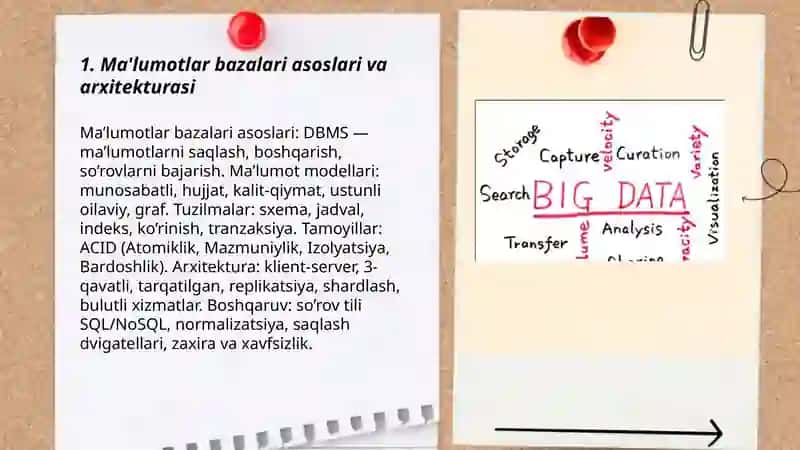 1. Ma'lumotlar bazalari asoslari va
arxitekturasi
Ma’lumotlar bazalari asoslari: DBMS —
ma’lumotlarni saqlash, boshqarish,
so’rovlarni bajarish. Ma’lumot modellari:
munosabatli, hujjat, kalit-qiymat, ustunli
oilaviy, graf. Tuzilmalar: sxema, jadval,
indeks, ko’rinish, tranzaksiya. Tamoyillar:
ACID (Atomiklik, Mazmuniylik, Izolyatsiya,
Bardoshlik). Arxitektura: klient-server, 3-
qavatli, tarqatilgan, replikatsiya, shardlash,
bulutli xizmatlar. Boshqaruv: so’rov tili
SQL/NoSQL, normalizatsiya, saqlash
dvigatellari, zaxira va xavfsizlik.
Storage
Capture
velocity
Curation
Variety
Visualization
Search
BIG DATA
Transfer
lume
Analysis
racity